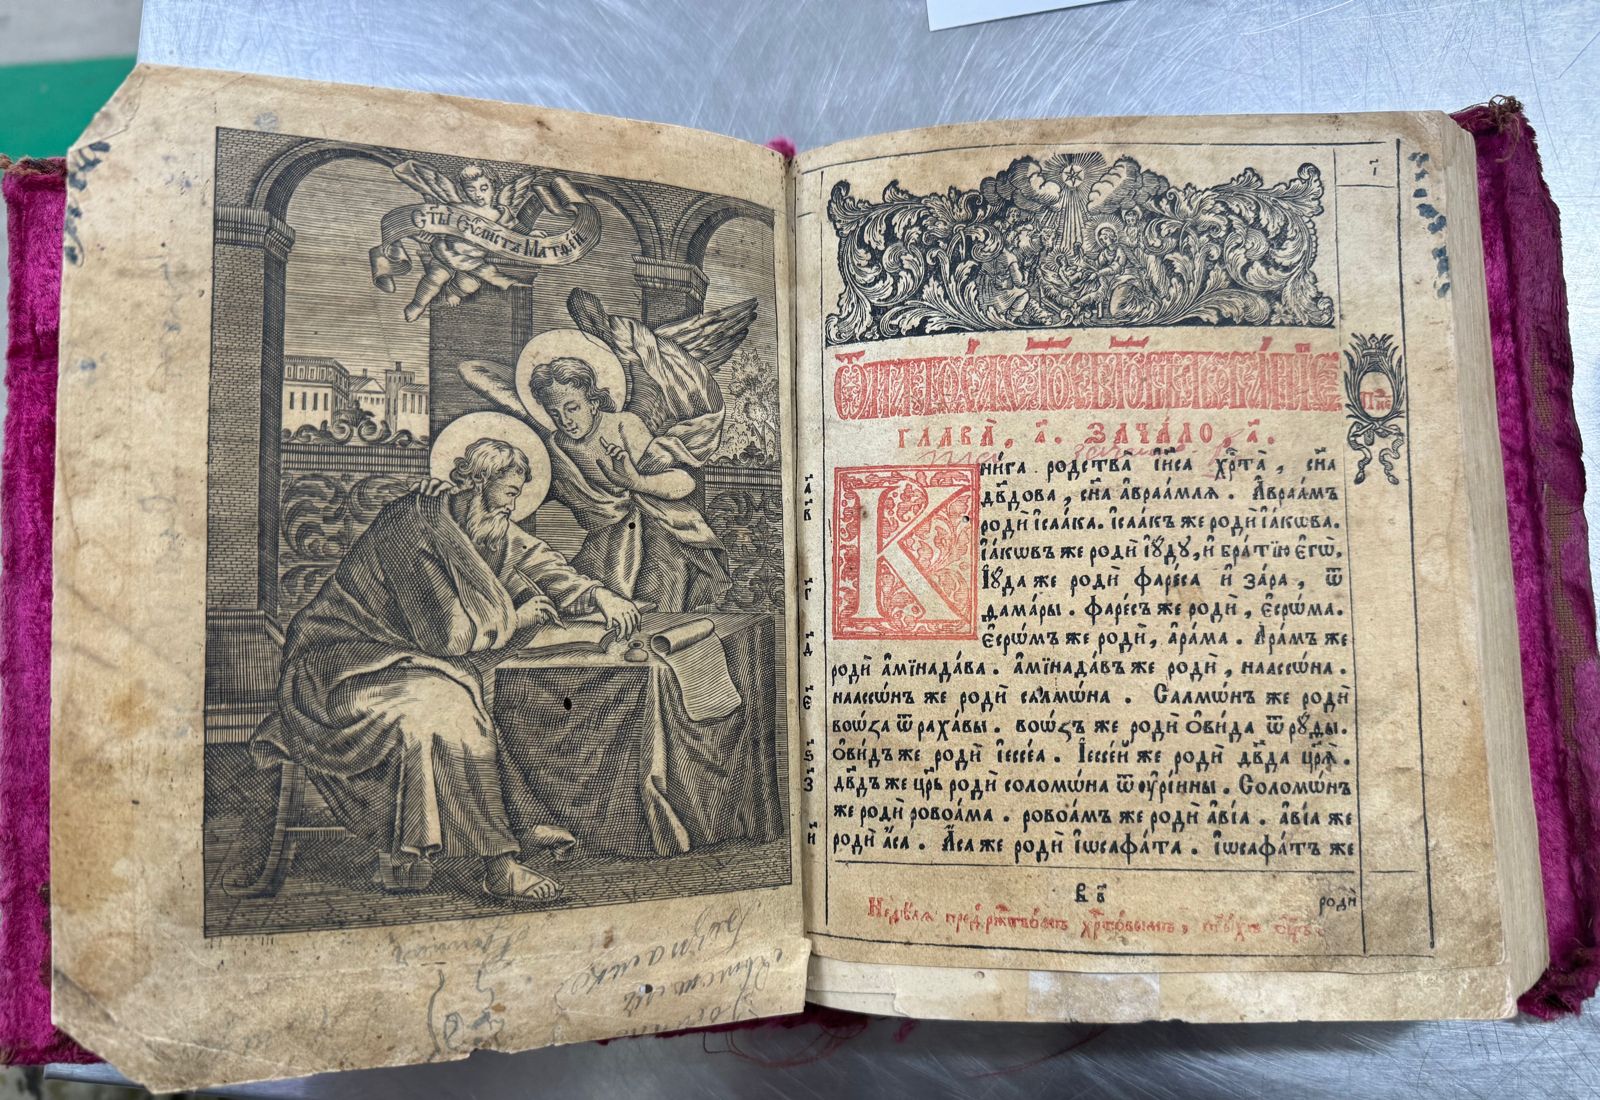 С҃ты́й Єѵⷢ҇листъ Матѳе́й
Ѿ МАТѲЕ́А СТ҃О́Е БЛГОВѢСТВОВА́НЇЕ
ГЛАВА̀, а҃. ЗАЧА́ЛО, а҃.
Кни́га родства̀ і҆и҃са хр҃та̀, сн҃а
дв҃дова, сн҃а а҆враа́млѧ. А҆враа́мъ
родѝ і҆саа́ка. і҆саа́къ же родѝ і҆а́кѡва.
і҆а́кѡвъ же родѝ і҆ꙋ́дꙋ, и҆ бра́тїю є҆гѡ̀.
І҆ꙋ́да же родѝ фаре́са и҆ за́ра, ѿ
ѳама́ры. фаре́съ же родѝ, є҆срѡ́ма.
є҆срѡ́мъ же родѝ, а҆ра́ма. А҆ра́мъ же
родѝ а҆мїнада́ва. а҆мїнада́въ же родѝ, наассѡ́на.
наассѡ́нъ же родѝ салмѡ́на. Салмѡ́нъ же родѝ
воѡ́ꙁа ѿ раха́вы. воѡ́ꙁъ же родѝ ѻ҆ви́да ѿ рꙋ́ды.
ѻ҆ви́дъ же родѝ і҆ессе́а. І҆ессе́й же родѝ дв҃да цр҃ѧ̀.
дв҃дъ же цр҃ь родѝ соломѡ́на ѿ ᲂу҆рі́ины. Соломѡ́нъ
же родѝ ровоа́ма. ровоа́мъ же родѝ а҆ві́а. а҆ві́а же
родѝ а҆́са. А҆́са же родѝ і҆ѡсафа́та. і҆ѡсафа́тъ же
родѝ
Недѣ́лѧ пред̾ рж҃тво́мъ хр҃то́вымъ, ст҃ы́хъ ѻ҆ц҃ъ